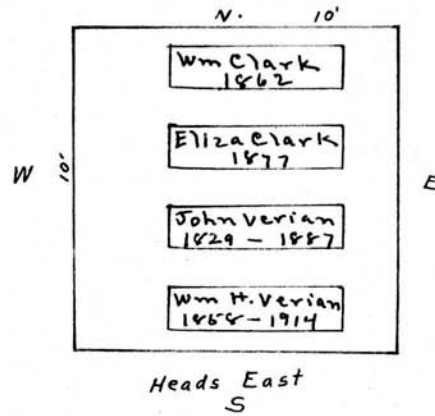 N. 10'
Wm Clark
1862
Eliza Clark
1877
W 10' E
John Verian
1829 - 1887
Wm H. Verian
1868 - 1914
Heads East
S